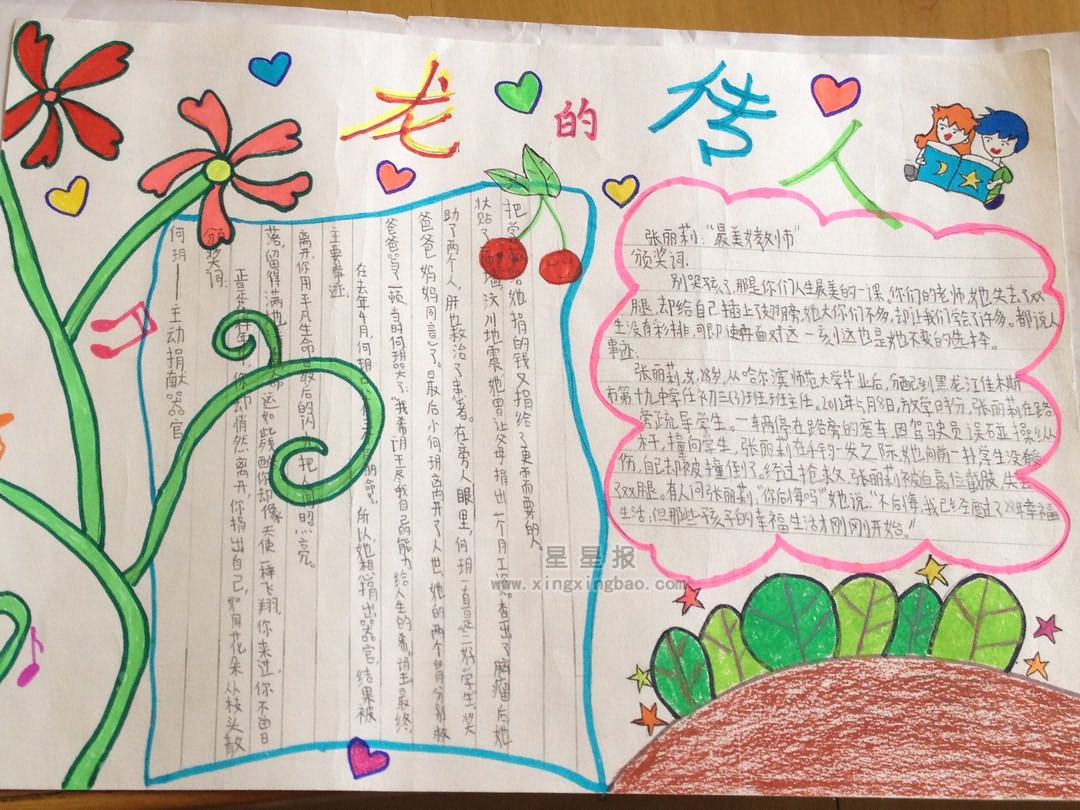 龙的传人
何玥——主动捐献器官
颁奖词:
正
你却悄然离开,你捐出自己,如同花朵从枝头散
落,留得满地
命运如此残酷,你却像天使一样飞翔。你来过,你不曾
离开,你用平凡生命最后的闪
把人间照亮。
主要事迹:
在去年4月,何玥
所以她想捐出器官,结果被
爸爸骂了一顿,当时何玥哭了:"我希望
尽我自己的能力,给人生的希
最终,
爸爸妈妈同意了。最后小何玥离开了人世,她的两个肾分别救
助了两个人,肝也救治了患者。在旁人眼里,何玥一直是三好学生,奖
状贴了
汶川地震,她曾让父母捐出一个月工资。查出了脑瘤后,她
把
给她捐的钱又捐给了更
需要的人。
张丽莉:"最美女教师"
颁奖词:
别哭,孩子,那是你们人生最美的一课。你们的老师,她失去了双
腿,却给自己插上了翅膀,她大你们不多,却让我们学会了许多。都说人
生没有彩排,可即使再面对这一刻,这也是她不变的选择。
事迹:
张丽莉,女,28岁,从哈尔滨师范大学毕业后,分配到黑龙江佳木斯
市第十九中学任初三(3)班班主任。2012年5月8日,放学时分,张丽莉在路
旁疏导学生。一辆停在路旁的客车,因驾驶员误碰操纵
杆,撞向学生,张丽莉在千钧一发之际,她向前一扑,学生没有
伤,自己却被撞倒了。经过抢救,张丽莉被迫高位截肢,失去
了双腿。有人问张丽莉:"你后悔吗"她说:"不后悔,我已经度过了28年幸福
生活,但那些孩子的幸福生活才刚刚开始。"
星星报
www.xingxingbao.com